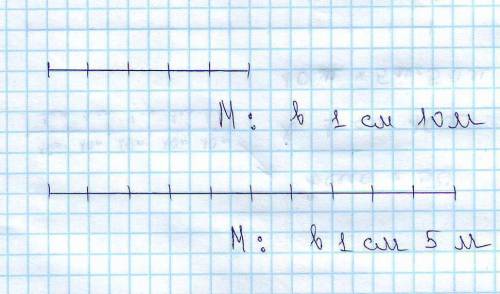 М: в 1 см 10 м
М: в 1 см 5 м